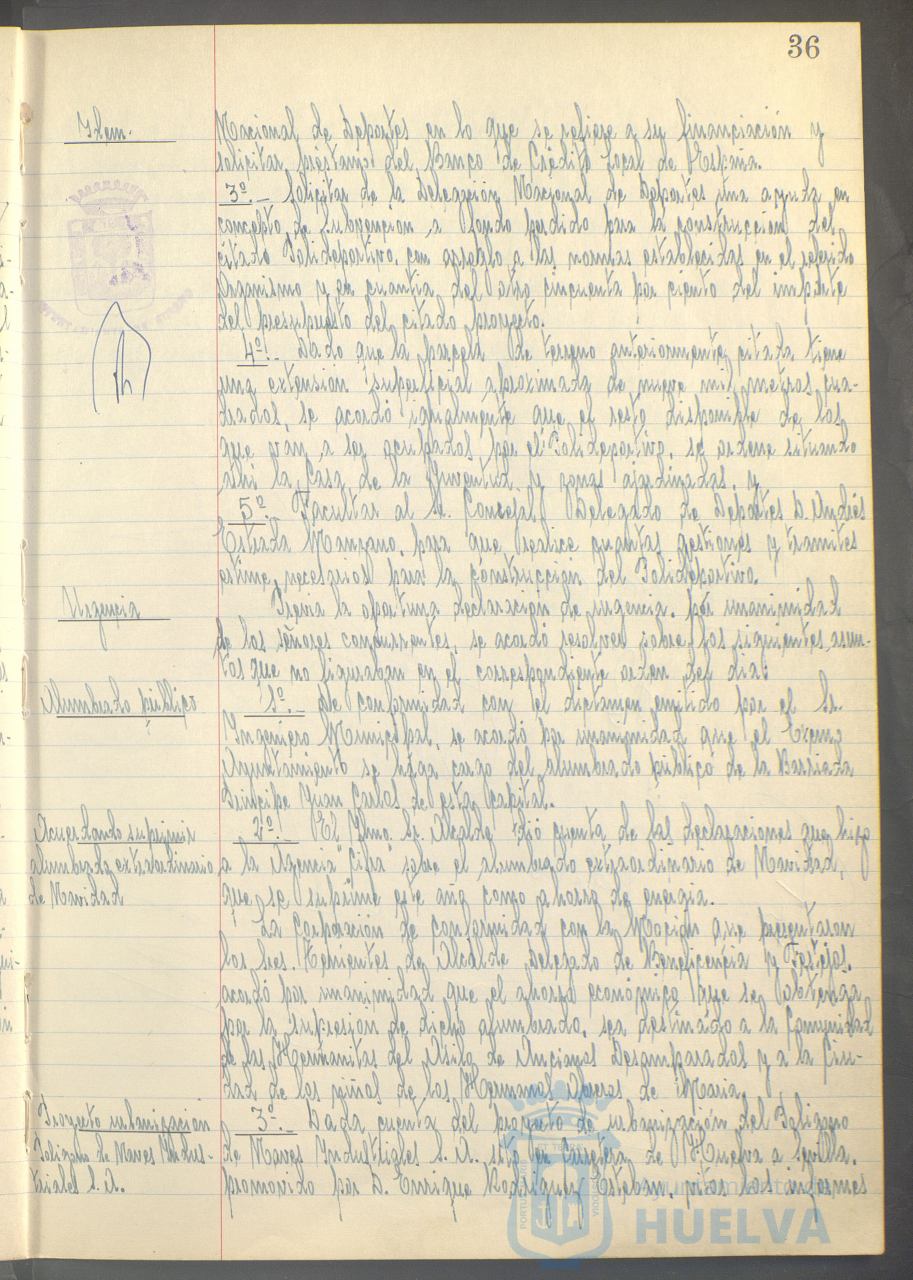 36
Idem.
Nacional de Deportes en lo que se refiere a su financiación y
solicitar préstamo del Banco de Crédito Local de España.
3º.- Solicitar de la Delegación Nacional de Deportes una ayuda en
concepto de subvención a fondo perdido para la construcción del
citado Polideportivo, con arreglo a las normas establecidas en el referido
Organismo y en cuantía del otro cincuenta por ciento del importe
del presupuesto del citado proyecto.
4º.- Dado que la parcela de terreno anteriormente citada tiene
una extensión superficial aproximada de nueve mil metros cua-
drados, se acordó igualmente que el resto disponible de los
que van a ser ocupados por el Polideportivo, se ordene situando
allí la Casa de la Juventud y zonas ajardinadas, y
5º.- Facultar al Sr. Concejal Delegado de Deportes D. Andrés
Estrada Manzano, para que realice cuantas gestiones y trámites
estime necesarios para la construcción del Polideportivo.
Urgencia
Previa la oportuna declaración de urgencia, por unanimidad
de los señores concurrentes, se acordó resolver sobre los siguientes asun-
tos que no figuraban en el correspondiente orden del día:
Alumbrado público
1º.- De conformidad con el dictamen emitido por el Sr.
Ingeniero Municipal, se acordó por unanimidad que el Excmo.
Ayuntamiento se haga cargo del alumbrado público de la Barriada
Príncipe Juan Carlos de esta capital.
Acuerdando suprimir
alumbrado extraordinario
de Navidad
2º.- El Ilmo. Sr. Alcalde dió cuenta de las declaraciones que hizo
a la Agencia "Cifra" sobre el alumbrado extraordinario de Navidad,
que se suprime este año como ahorro de energía.
La Corporación de conformidad con la Moción que presentaron
los Sres. Tenientes de Alcalde Delegado de Beneficencia y Festejos,
acordó por unanimidad que el ahorro económico que se obtenga
por la supresión de dicho alumbrado, sea destinado a la Comunidad
de las Hermanitas del Asilo de Ancianos Desamparados y a la Ciu-
dad de los niños de los Hermanos Obreros de María.
Proyecto urbanización
Polígono de Naves Indus-
triales S.A.
3º.- Dada cuenta del proyecto de urbanización del Polígono
de Naves Industriales S.A. sito en Carretera de Huelva a Sevilla,
promovido por D. Enrique Rodríguez Esteban, vistos los informes
Ayuntamiento de
HUELVA